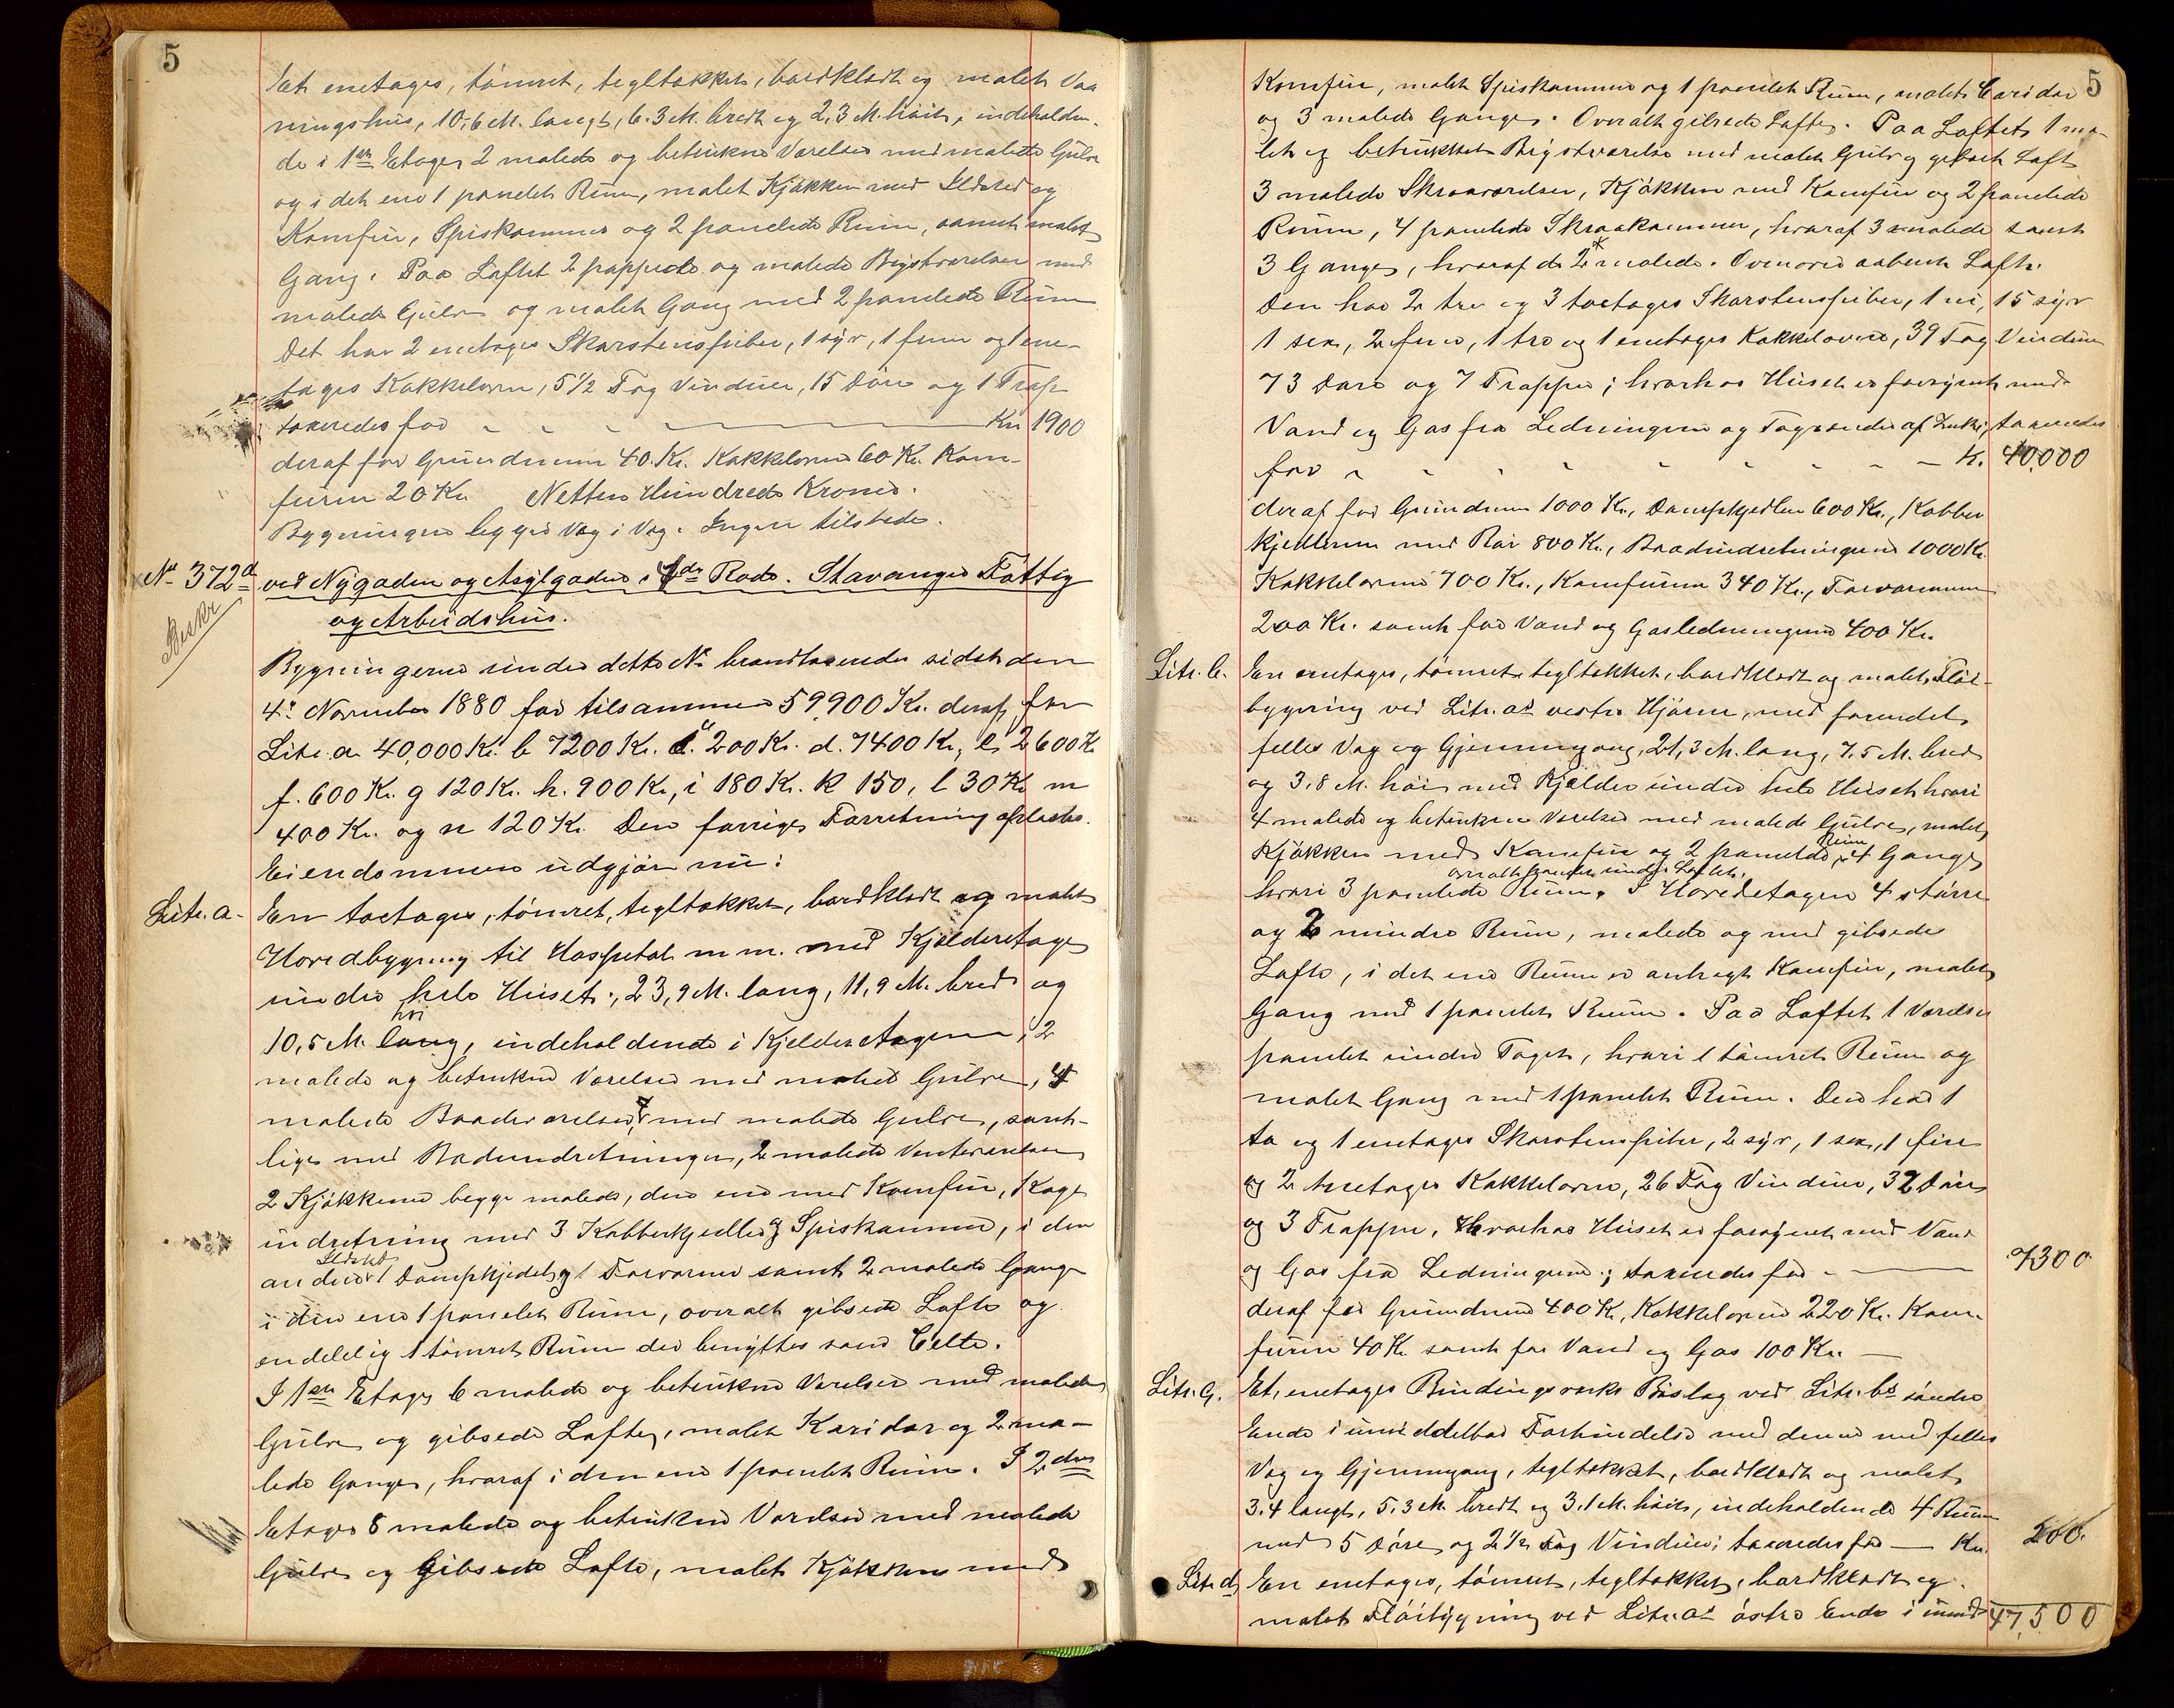 5
Et enetages, tömret, tegltækket, bordklædt og malet Vaa
ningshus, 10,6 M. langt, 6.3 M. bredt og 2,3 M. höit, indeholden-
de i 1ste Etage 2 malede og betrukne Værelser med malede Gulve
og i det ene 1 panelet Rum, malet Kjökken med Ildsted og
Komfur, Spiskammer og 2 panelede Rum, samt malet
Gang. Paa Loftet 2 pappede og malede Brystværelser med
malede Gulve og malet Gang med 2 panelede Rum
Det har 2 enetages Skorstenspiber, 1 syv, 1 fem og 1 ene-
tages Kakkelovn, 5 1/2 Fag Vinduer, 15 Döre og 1 Trap
taxeredes for - - - Kr. 1900
deraf for Grundmuren 40 Kr. Kakkelovne 60 Kr. Kom-
furen 20 Kr. Nitten Hundrede Kroner.
Bygningen ligger Væg i Væg. Ingen tilstede.
No 372d ved Nygaden og Asylgaden i 4de Rode. Stavanger Fattig
Beskr
og Arbeidshus.
Bygningerne under dette No brandtaxeredes sidst den
4de November 1880 for tilsammen 59,900 Kr. deraf for
Litr. a 40,000 Kr. b 7200 Kr. c. 200 Kr. d. 7400 Kr, e 2600 Kr
f. 600 Kr. g 120 Kr. h. 900 Kr, i 180 Kr. k 150, l 30 Kr m
400 Kr. og n 120 Kr. Den forrige Forretning oplæstes.
Eiendommen udgjör nu:
Litr. a. En toetages, tömret, tegltækket, bordklædt og malet
Hovedbygning til Hospital m m. med Kjælderetage
under hele Huset, 23,9 M. lang, 11,9 M. bred og
höi
10,5 M. lang, indeholdende i Kjelderetagen, 2
malede og betrukne Værelser med malet Gulve, 4
malede Badeværelser, med malede Gulve, samt-
lige med Badeindretninger, 2 malede Venteværelser
2 Kjökkener begge malede, den ene med Komfur, Koge
indretning med 3 Kobberkjedler og Spiskammer, i den
Ildsted
anden 1 Dampkjedel og 1 Forvarmer samt 2 malede Gange
i den ene 1 panelet Rum, overalt gibsede Lofte og
endelig 1 tömret Rum der benyttes som Celle.
I 1ste Etage 6 malede og betrukne Værelser med malede
Gulve og gibsede Lofte, malet Koridor og 2 ma-
lede Gange, hvoraf i den ene 1 panelet Rum. I 2den
Etage 8 malede og betrukne Værelser med malede
Gulve og Gibsede Lofte, malet Kjökken med
5
Komfur, malet Spiskammer og 1 panelet Rum, malet Coridor
og 3 malede Gange. Overalt gibsede Lofte. Paa Loftet 1 ma-
let og betrukket Brystværelse med malet Gulv og gibset Loft
3 malede Skraaværelser, Kjökken med Komfur og 2 panelede
Rum, 4 panelede Skraakammer, hvoraf 3 malede samt
3 Gange, hvoraf de 2 malede. Ovenover aabent Loft.
Den har 2 tre og 3 toetages Skorstenspiber, 1 ni, 15 syv
1 sex, 2 fem, 1 tre og 1 enetages Kakkelovne, 39 Fag Vinduer
73 Döre og 7 Trapper; hvorhos Huset er forsynet med
Vand og Gas fra Ledningerne og Tagrender af Zink; taxeredes
for - - - Kr. 40,000
deraf for Grundmuren 1000 Kr., Dampkjedlen 600 Kr., Kobber
kjedlerne med Rör 800 Kr., Badeindretningerne 1000 Kr.
Kakkelovne 700 Kr., Komfurene 340 Kr., Forvarmeren
200 Kr. samt for Vand og Gasledningerne 400 Kr.
Litr. b. En enetages, tömret tegltækket, bordklædt og malet Flöi-
bygning ved Litr. as vestre Hjörne, med forenet
felles Væg og Gjennemgang, 21,3 M. lang, 7.5 M. bred
og 3.8 M. höi med Kjælder under hele Huset hvori
4 malede og betrukne Værelser med malede Gulve, malet
Rum
Kjökken med Komfur og 2 panelede, 4 Gange
overalt panelet under Loftet.
hvori 3 panelede Rum. I Hovedetagen 4 större
og 2 mindre Rum, malede og med gibsede
Lofte, i det ene Rum er anbragt Komfur, malet
Gang med 1 panelet Rum. Paa Loftet 1 Værelse
panelet under Taget, hvori 1 tömret Rum og
malet Gang med 1 panelet Rum. Den har 1
to og 1 enetages Skorstenspiber, 2 syv, 1 sex, 1 fire
og 2 treetages Kakkelovne, 26 Fag Vinduer, 32 Döre
og 3 Trapper, Hvorhos Huset er forsynet med Vand
og Gas fra Ledningerne; taxeredes for - 7300
deraf for Grundmuren 400 Kr, Kakkelovne 220 Kr. Kom-
furene 40 Kr. samt for Vand og Gas 100 Kr. —
Litr. c. Et enetages Bindingsverks Bislag ved Litr. bs söndre
Ende i umiddelbar Forbindelse med denne med felles
Væg og Gjennemgang, tegltækket, bordklædt og malet
3.4 langt, 5.3 M. bredt og 3.1 M. höit, indeholdende 4 Rum
med 5 Döre og 2 1/2 Fag Vinduer; taxeredes for — Kr. 200.
Litr. d. En enetages, tömret, tegltækket, bordklædt og
malet Flöibygning ved Litr. as östre Ende i umid-
47,500